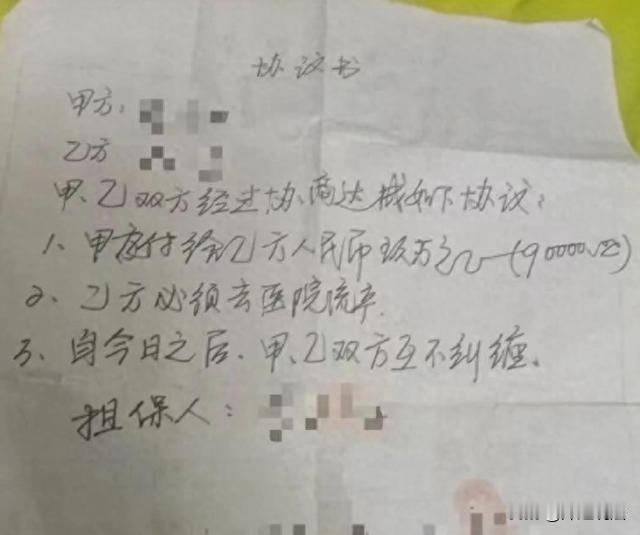 协议书
甲方:
乙方
甲、乙双方经过协商达成如下协议:
1、甲方付给乙方人民币玖万元(90000元)
2、乙方必须去医院流产.
3、自今日之后、甲、乙双方互不纠缠。
担保人: